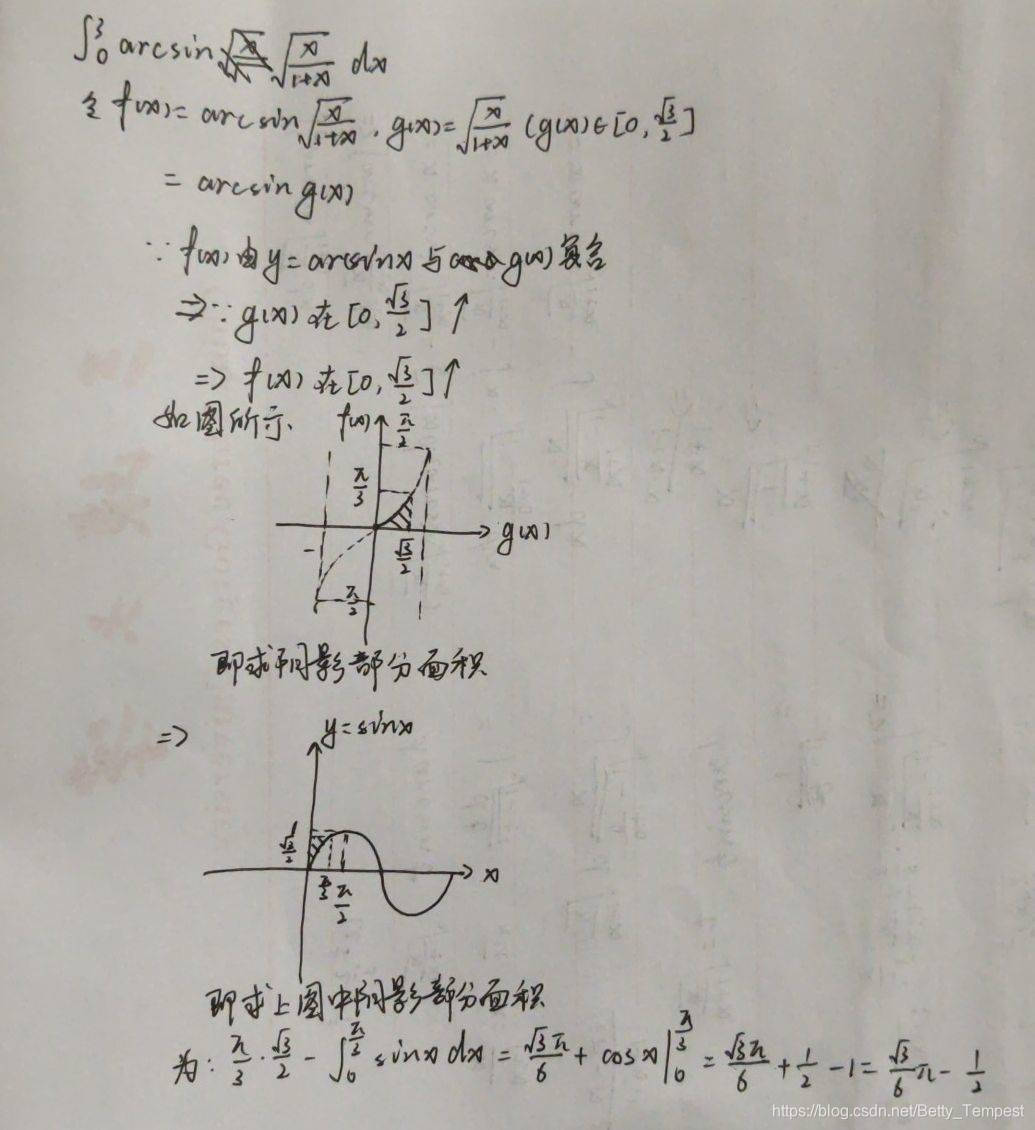 ∫₀³ arcsin √(x/(1+x)) dx
令 f(x) = arcsin √(x/(1+x)) , g(x) = √(x/(1+x)) (g(x)∈[0, √3/2]
= arcsin g(x)
∵ f(x) 由 y = arcsinx 与 g(x) 复合
⇒ ∵ g(x) 在 [0, √3/2] ↑
=> f(x) 在 [0, √3/2] ↑
如图所示、
f(x) π/2
π/3
g(x)
- √3/2
π/2
即求阴影部分面积
=>
y = sinx
1
√3/2
x
π/3 π/2
即求上图中阴影部分面积
为: π/3 · √3/2 - ∫₀^(π/3) sinx dx = √3π/6 + cos x |₀^(π/3) = √3π/6 + 1/2 - 1 = √3/6 π - 1/2
https://blog.csdn.net/Betty_Tempest